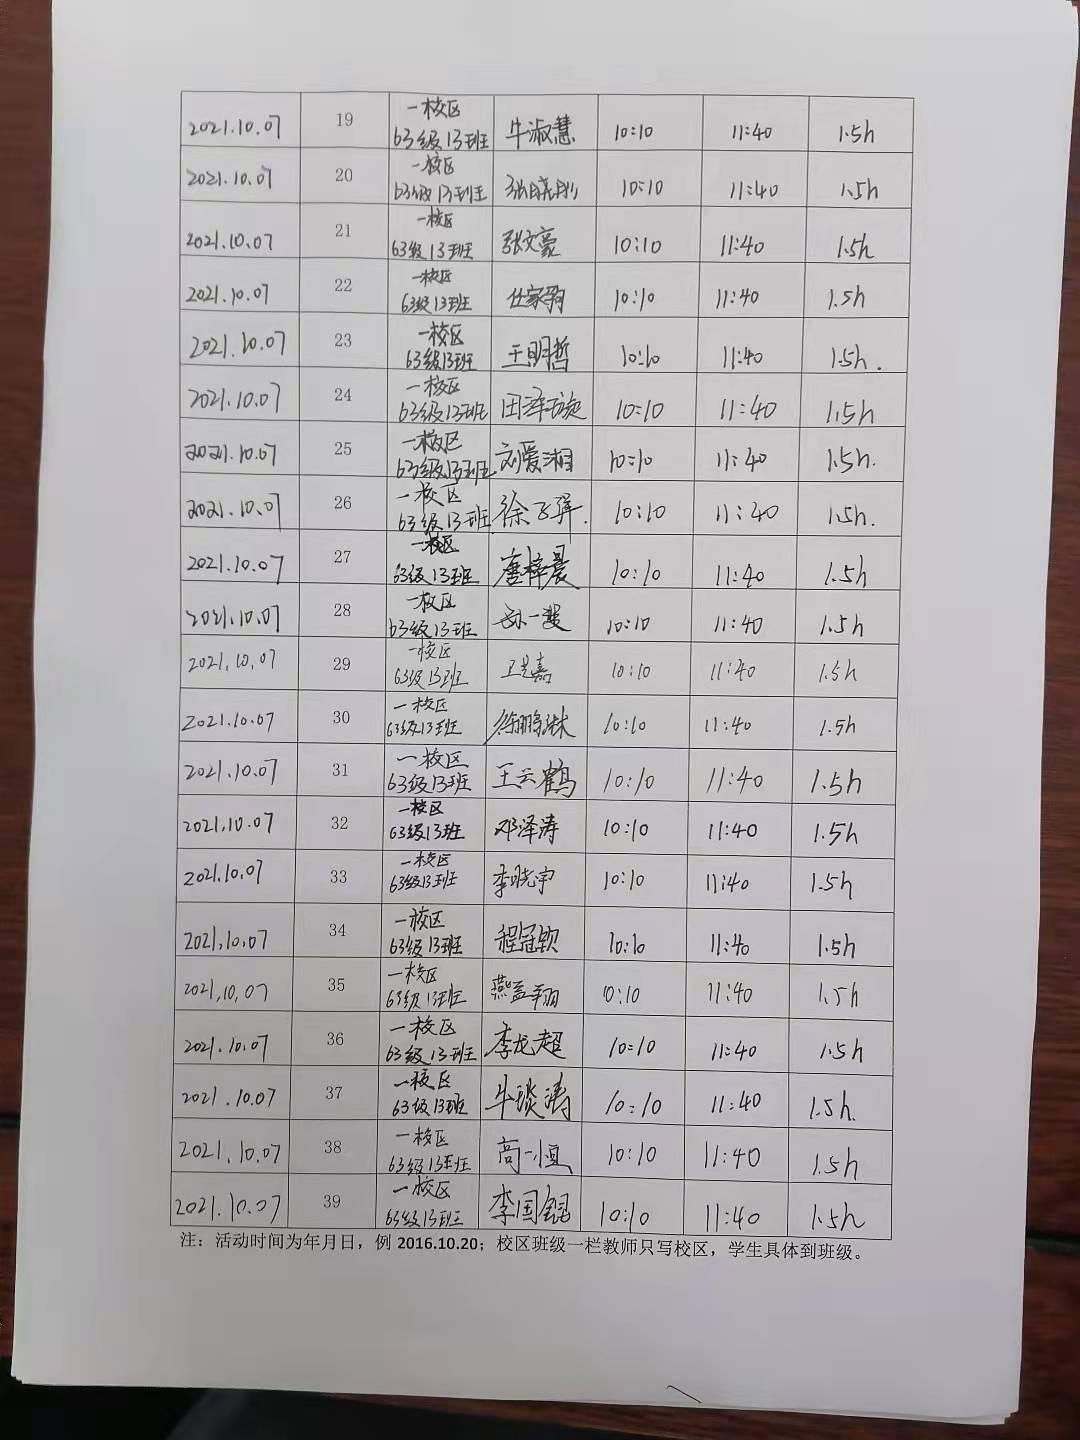 2021.10.07 19 一校区 63级13班 牛淑慧 10:10 11:40 1.5h
2021.10.07 20 一校区 63级13班 张晓刚 10:10 11:40 1.5h
2021.10.07 21 一校区 63级13班 张文豪 10:10 11:40 1.5h
2021.10.07 22 一校区 63级13班 任家驹 10:10 11:40 1.5h
2021.10.07 23 一校区 63级13班 王明哲 10:10 11:40 1.5h.
2021.10.07 24 一校区 63级13班 田泽璇 10:10 11:40 1.5h
2021.10.07 25 一校区 63级13班 刘爱湘 10:10 11:40 1.5h.
2021.10.07 26 一校区 63级13班 徐飞洋. 10:10 11:40 1.5h.
2021.10.07 27 一校区 63级13班 唐梓晨 10:10 11:40 1.5h
2021.10.07 28 一校区 63级13班 孙一斐 10:10 11:40 1.5h
2021.10.07 29 一校区 63级13班 10:10 11:40 1.5h
2021.10.07 30 一校区 63级13班 徐鹏淋 10:10 11:40 1.5h
2021.10.07 31 一校区 63级13班 王云鹤 10:10 11:40 1.5h
2021.10.07 32 一校区 63级13班 邓泽涛 10:10 11:40 1.5h
2021.10.07 33 一校区 63级13班 李晓宇 10:10 11:40 1.5h
2021.10.07 34 一校区 63级13班 程冠钦 10:10 11:40 1.5h
2021.10.07 35 一校区 63级13班 燕孟翔 10:10 11:40 1.5h
2021.10.07 36 一校区 63级13班 李龙超 10:10 11:40 1.5h
2021.10.07 37 一校区 63级13班 牛琰涛 10:10 11:40 1.5h.
2021.10.07 38 一校区 63级13班 高一恒 10:10 11:40 1.5h
2021.10.07 39 一校区 63级13班 李国锟 10:10 11:40 1.5h
注：活动时间为年月日，例 2016.10.20；校区班级一栏教师只写校区，学生具体到班级。